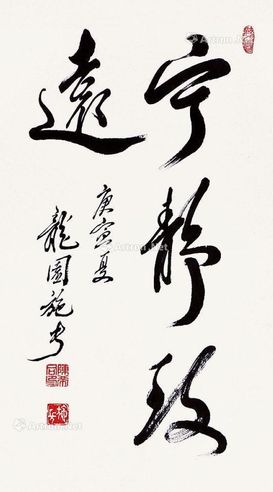 宁静致
远
庚寅夏
龍園施安
Artron.Net